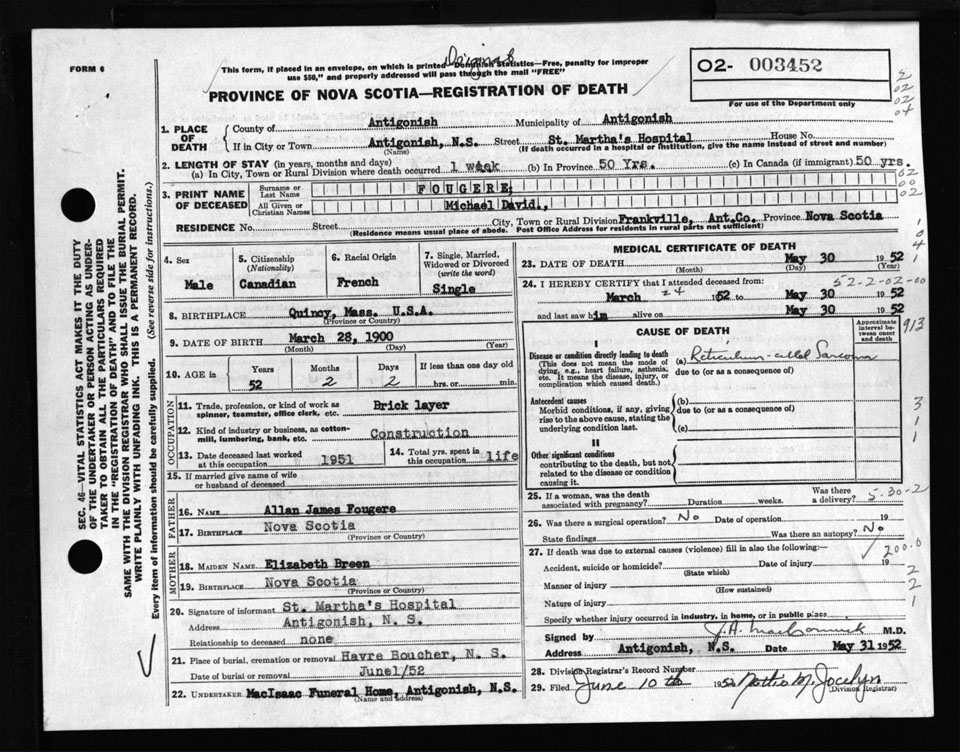 FORM 6
Original
This form, if placed in an envelope, on which is printed Dominion Statistics—Free, penalty for improper
use $50," and properly addressed will pass through the mail "FREE"
PROVINCE OF NOVA SCOTIA—REGISTRATION OF DEATH
O2- 003452
For use of the Department only
1. PLACE OF DEATH
County of Antigonish Municipality of Antigonish
If in City or Town Antigonish, N.S. Street St. Martha's Hospital House No.
(Name) (If death occurred in a hospital or institution, give the name instead of street and number)
2. LENGTH OF STAY (in years, months and days)
(a) In City, Town or Rural Division where death occurred 1 week (b) In Province 50 Yrs. (c) In Canada (if immigrant) 50 yrs.
3. PRINT NAME OF DECEASED
Surname or Last Name FOUGERE,
All Given or Christian Names Michael David.,
RESIDENCE No. Street City, Town or Rural Division Frankville, Ant.Co. Province Nova Scotia
(Residence means usual place of abode. Post Office Address for residents in rural parts not sufficient)
4. Sex Male
5. Citizenship (Nationality) Canadian
6. Racial Origin French
7. Single, Married, Widowed or Divorced (write the word) Single
8. BIRTHPLACE Quincy, Mass. U.S.A.
(Province or Country)
9. DATE OF BIRTH March 28, 1900
(Month) (Day) (Year)
10. AGE in Years Months Days If less than one day old
52 2 2 hrs. or min.
OCCUPATION
11. Trade, profession, or kind of work as spinner, teamster, office clerk, etc. Brick layer
12. Kind of industry or business, as cotton-mill, lumbering, bank, etc. Construction
13. Date deceased last worked at this occupation 1951
14. Total yrs. spent in this occupation life
15. If married give name of wife or husband of deceased
FATHER
16. NAME Allan James Fougere
17. BIRTHPLACE Nova Scotia
(Province or Country)
MOTHER
18. MAIDEN NAME Elizabeth Breen
19. BIRTHPLACE Nova Scotia
(Province or Country)
20. Signature of informant St. Martha's Hospital
Address Antigonish, N. S.
Relationship to deceased none
21. Place of burial, cremation or removal Havre Boucher, N. S.
Date of burial or removal June1/52
22. UNDERTAKER MacIsaac Funeral Home, Antigonish, N.S.
(Name and address)
MEDICAL CERTIFICATE OF DEATH
23. DATE OF DEATH May 30 1952
(Month) (Day) (Year)
24. I HEREBY CERTIFY that I attended deceased from:
52-2-02-00
March 24 1952 to May 30 1952
and last saw him alive on May 30 1952
CAUSE OF DEATH
Approximate interval between onset and death
913
I
Disease or condition directly leading to death
(This does not mean the mode of dying, e.g., heart failure, asthenia, etc. It means the disease, injury, or complication which caused death.)
(a) Reticulum-celled Sarcoma
due to (or as a consequence of)
Antecedent causes
Morbid conditions, if any, giving rise to the above cause, stating the underlying condition last.
(b)
due to (or as a consequence of)
(c)
II
Other significant conditions
contributing to the death, but not related to the disease or condition causing it.
25. If a woman, was the death associated with pregnancy? Duration weeks. Was there a delivery?
5-30-2
26. Was there a surgical operation? No Date of operation 19
State findings Was there an autopsy? No
27. If death was due to external causes (violence) fill in also the following:—
200.0
Accident, suicide or homicide? Date of injury 19
(State which)
Manner of injury
(How sustained)
Nature of injury
Specify whether injury occurred in industry, in home, or in public place
Signed by J.A. MacCormick M.D.
Address Antigonish, N.S. Date May 31 1952
28. Division Registrar's Record Number
29. Filed June 10th 1952 M. Jocelyn
(Division Registrar)
SEC. 46—VITAL STATISTICS ACT MAKES IT THE DUTY
OF THE UNDERTAKER OR PERSON ACTING AS UNDER-
TAKER TO OBTAIN ALL THE PARTICULARS REQUIRED
IN THE "REGISTRATION OF DEATH" AND TO FILE THE
SAME WITH THE DIVISION REGISTRAR WHO SHALL ISSUE THE BURIAL PERMIT.
WRITE PLAINLY WITH UNFADING INK. THIS IS A PERMANENT RECORD.
Every item of information should be carefully supplied. (See reverse side for instructions.)